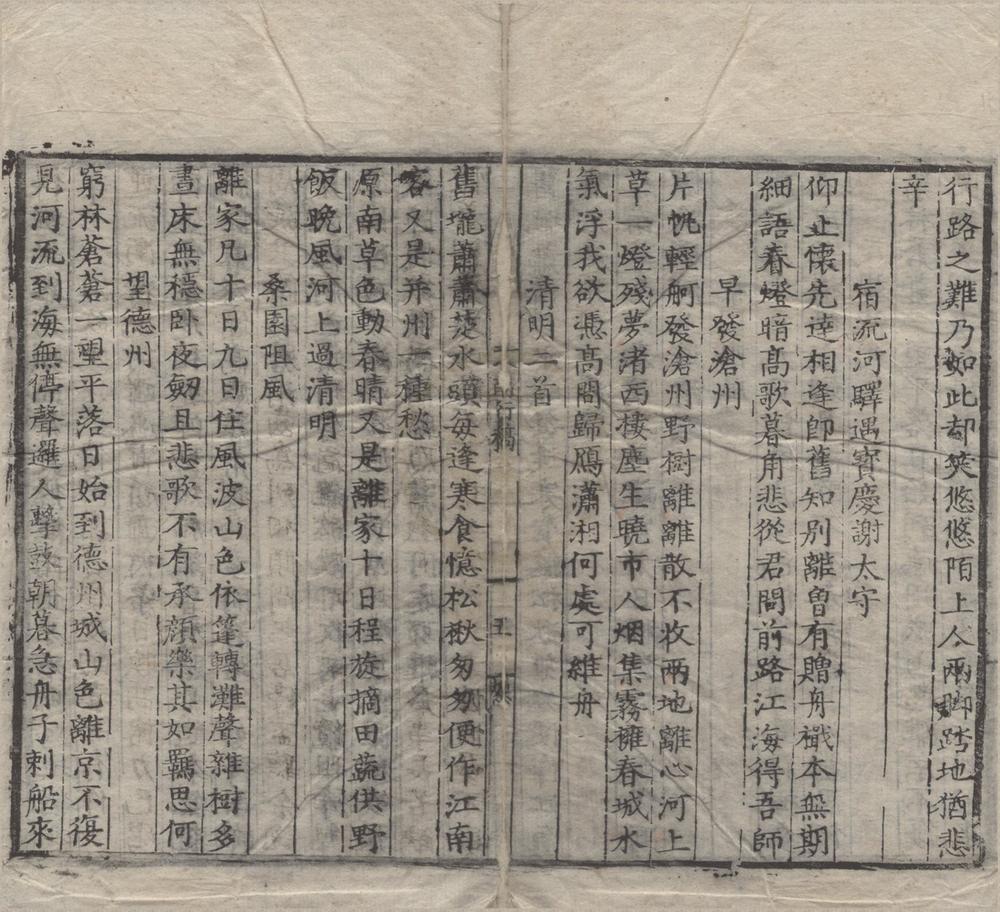 行路之難乃如此却笑悠悠陌上人兩脚踏地猶悲
辛
宿流河驛遇寶慶謝太守
仰止懷先逹相逢即舊知别離曾有贈舟檝本無期
細語春燈暗髙歌暮角悲從君問前路江海得吾師
早發滄州
片帆輕舸發滄州野樹離離散不收兩地離心河上
草一燈殘夢渚西樓塵生曉市人烟集霧擁春城水
氣浮我欲憑髙問歸鴈瀟湘何處可維舟
清明二首
舊壠蕭蕭楚水頭每逢寒食憶松楸匆匆便作江南
客又是并州一種愁
原南草色動春晴又是離家十日程旋摘田蔬供野
飯晚風河上過清明
桑園阻風
離家凡十日九日住風波山色依篷轉灘聲雜樹多
晝床無穩卧夜劒且悲歌不有承顔樂其如羈思何
望德州
窮林蒼蒼一望平落日始到德州城山色離京不復
見河流到海無停聲邏人擊鼓朝暮急舟子刺船來